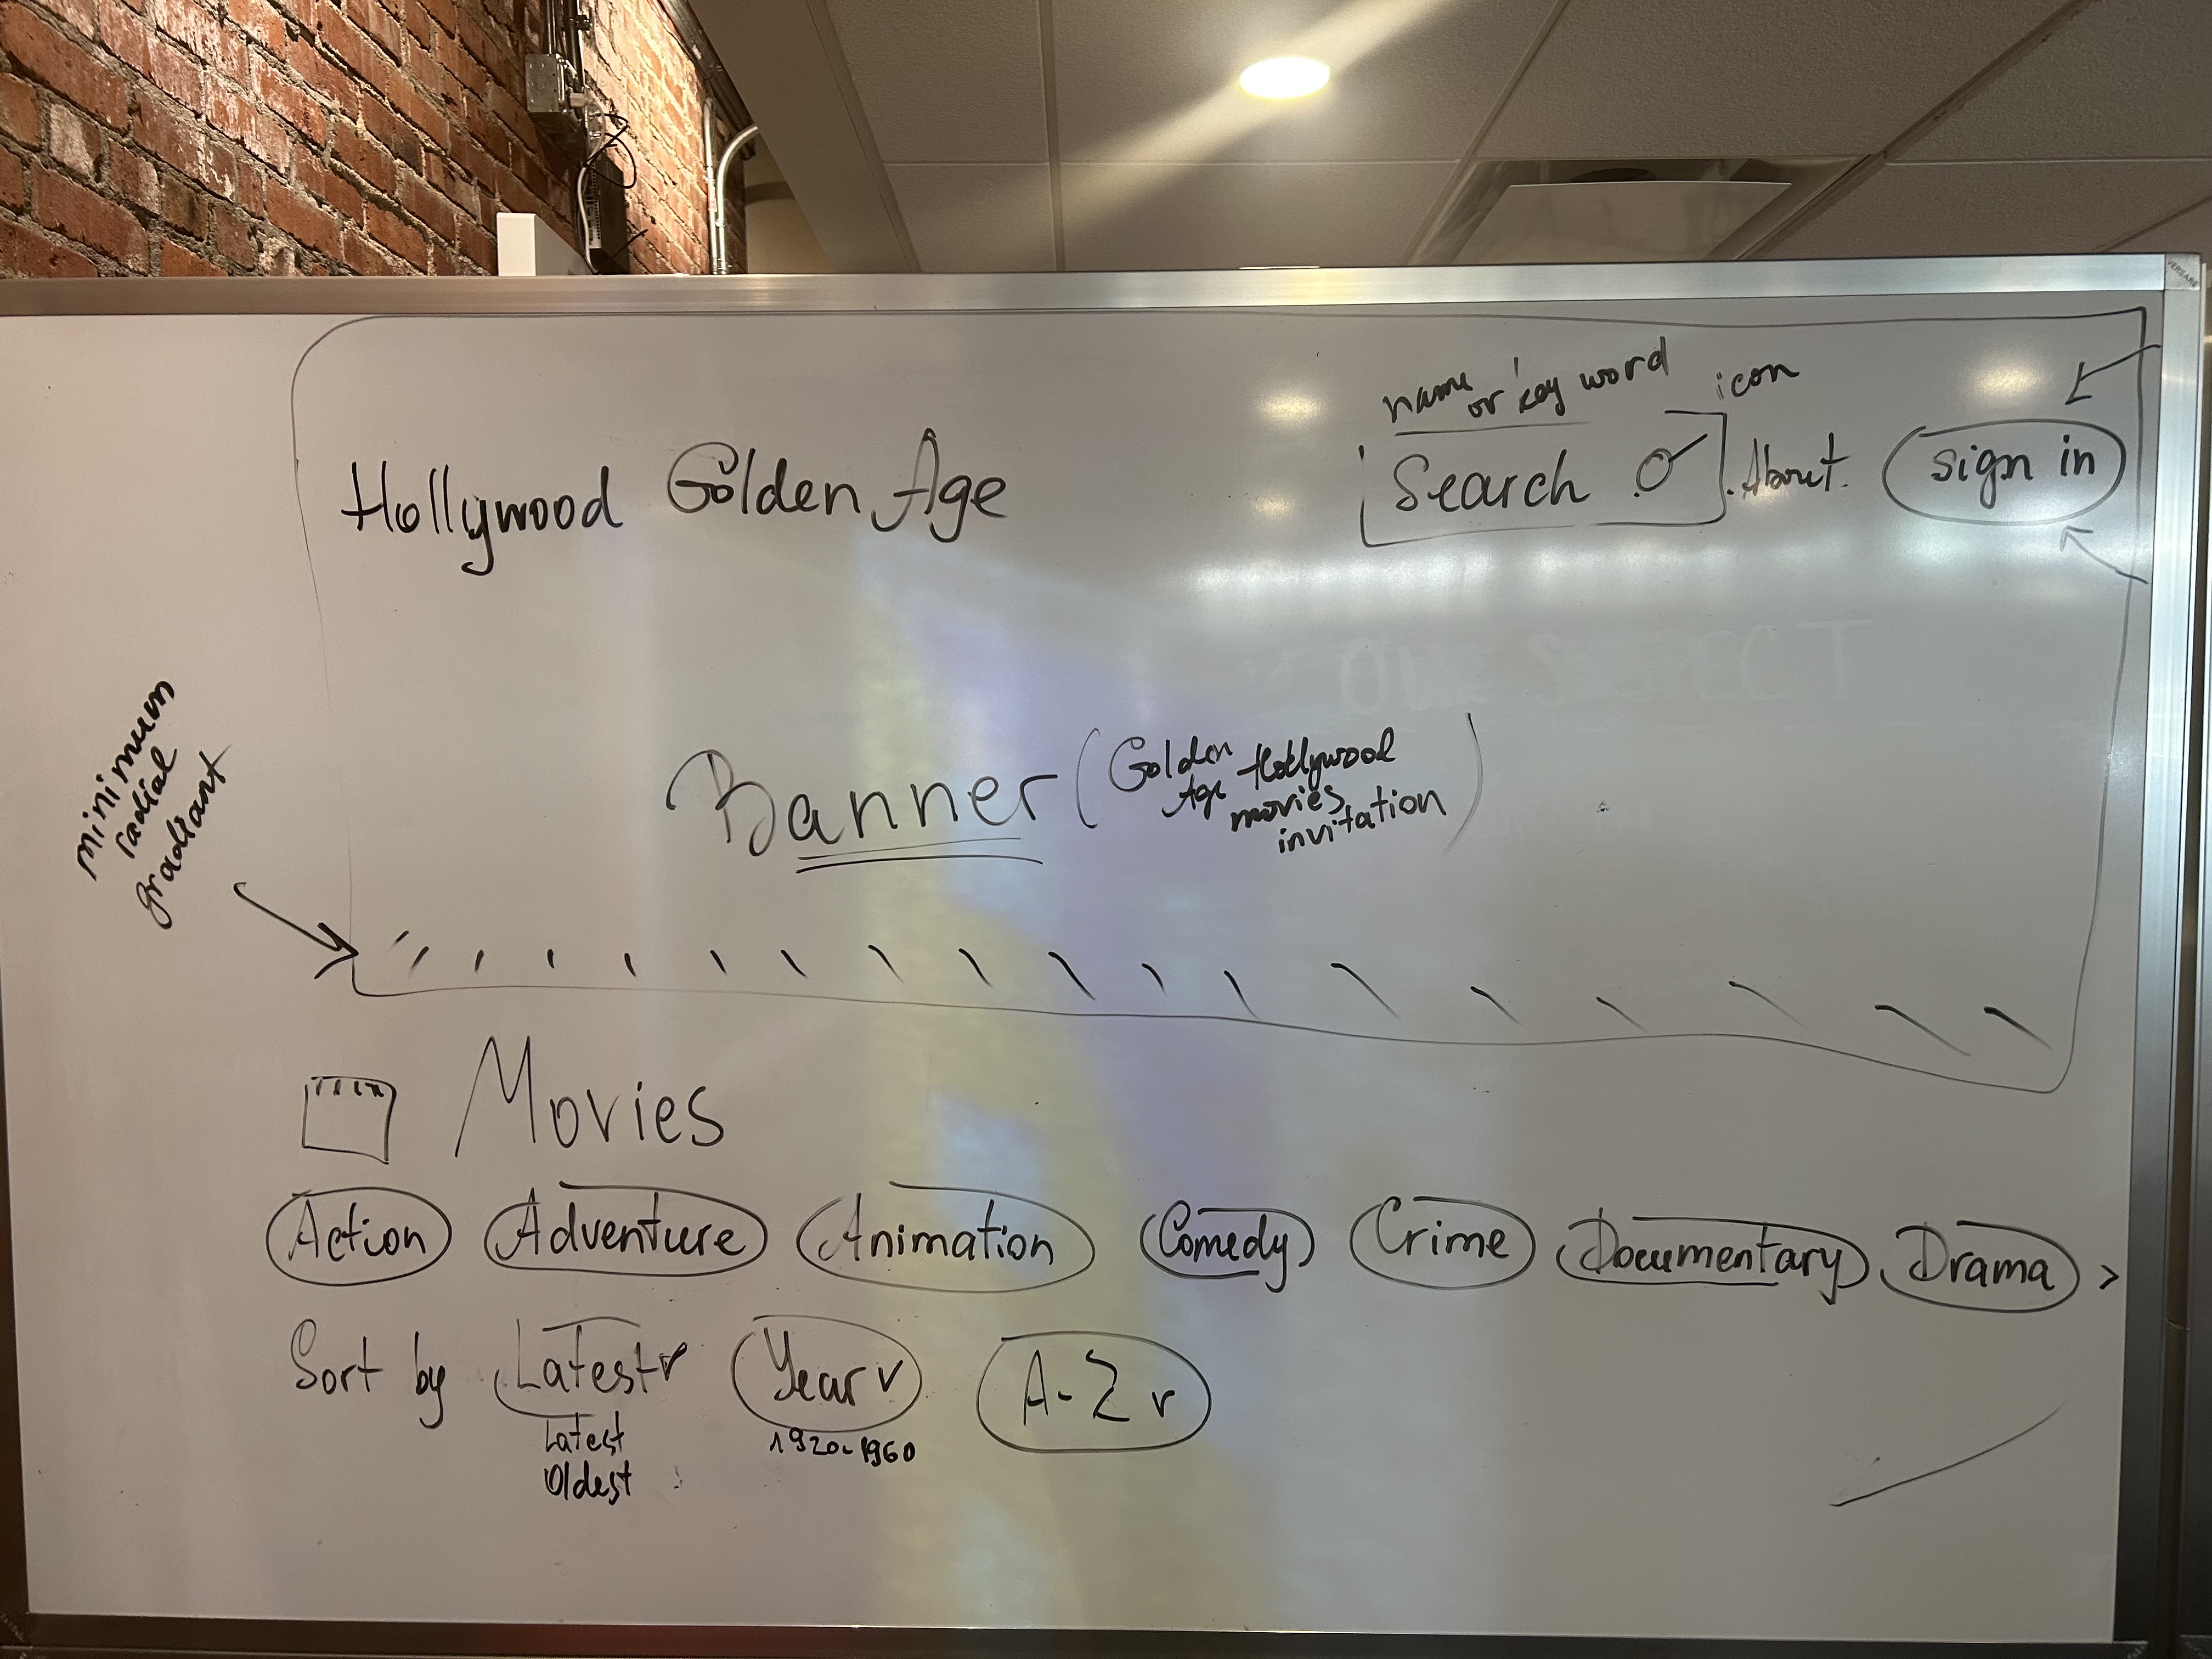 name or key word
icon
Hollywood Golden Age
Search
.About.
sign in
minimum
radial
gradiant
Banner (Golden Age Hollywood movies invitation)
Movies
Action Adventure Animation Comedy Crime Documentary Drama >
Sort by Latest v Year v A-Z v
Latest
Oldest
1920-1960
VERSARE